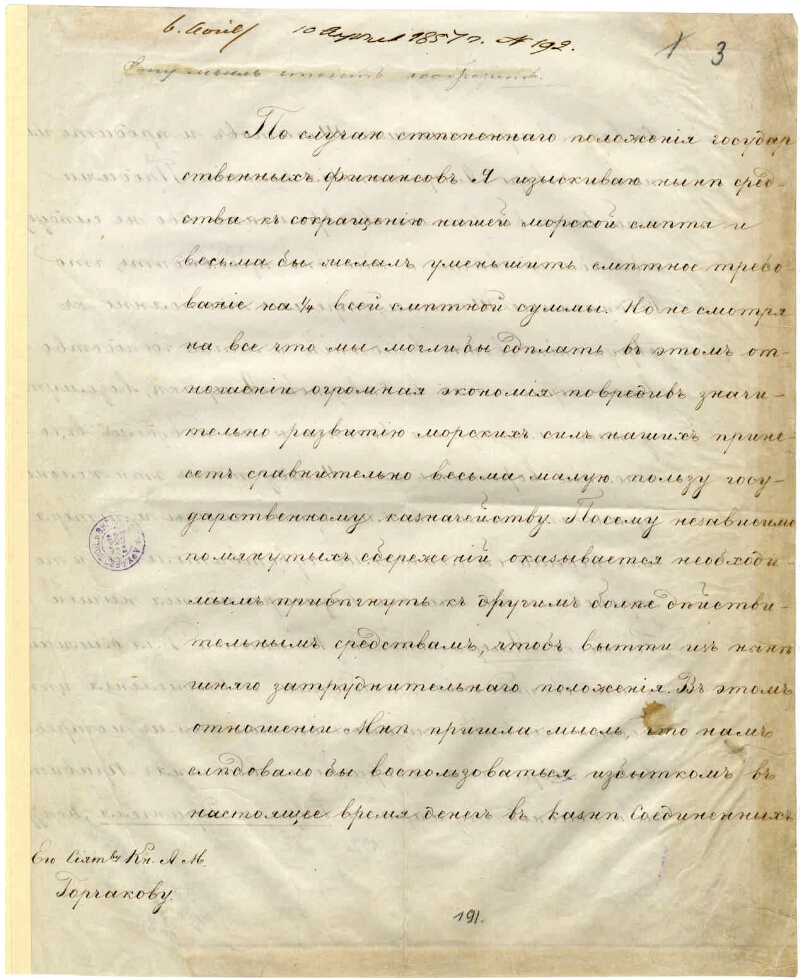 10 Апреля 1857 г. № 192.
1 3
Эту мысль стоит сообразить.
По случаю стѣсненнаго положенія государ
ственныхъ финансовъ Я изыскиваю нынѣ сред-
ства къ сокращенію нашей морской смѣты и
весьма бы желалъ уменьшить смѣтное требо-
ваніе на 1/4 всей смѣтной суммы. Но не смотря
на все что мы могли бы сдѣлать въ этомъ от-
ношеніи огромная экономія повредивъ значи-
тельно развитію морскихъ силъ нашихъ прине-
сетъ сравнительно весьма малую пользу госу-
дарственному казначейству. Посему независимо
помянутыхъ сбереженій оказывается необходи-
мымъ прибѣгнуть къ другимъ болѣе дѣйстви-
тельнымъ средствамъ, чтобъ вытти изъ нынѣ
шняго затруднительнаго положенія. Въ этомъ
отношеніи Мнѣ пришла мысль, что намъ
слѣдовало бы воспользоваться избыткомъ въ
настоящее время денегъ въ казнѣ Соединенныхъ
Его Сіятву Кн. А. М.
Горчакову.
191.